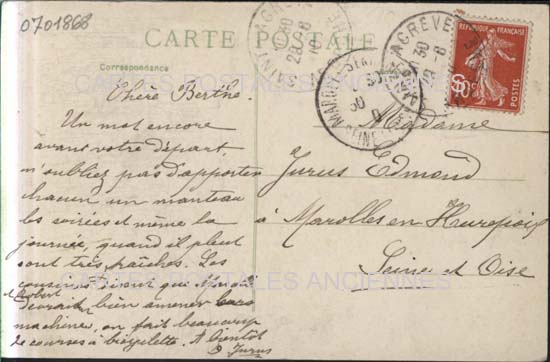 0701868
CARTE POSTALE
Correspondance
Chère Berthe.
Un mot encore
avant votre départ,
n'oubliez pas d'apporter
chacun un manteau
les soirées et même la
journée, quand il pleut
sont très fraîches. Les
cousins disent que
& Robert
devrait bien amener
machine, on fait beaucoup
de courses à bicyclette. A bientôt
Jurus
Madame
Jurus Edmond
à Marolles en Hurepoix
Seine et Oise
RÉPUBLIQUE FRANÇAISE
10c
POSTES
LACREVE
30
29-8
10
CARTES POSTALES ANCIENNES
CARTES POSTALES ANCIENNES